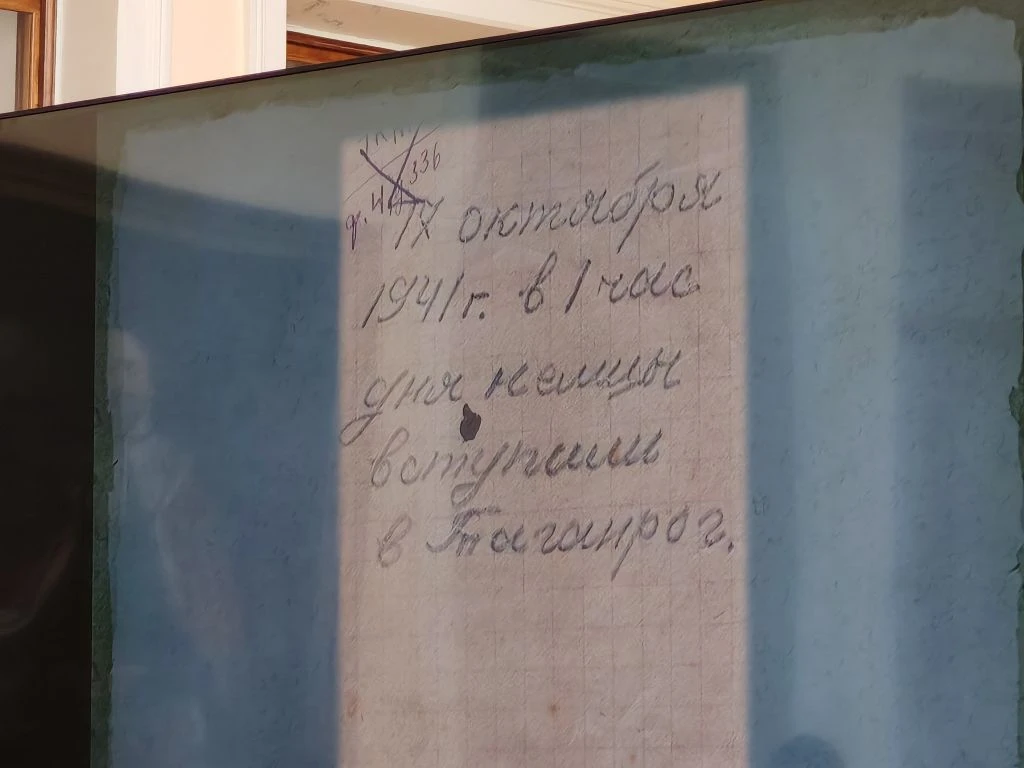 336
17 октября
1941 г. в 1 час
дня немцы
вступили
в Таганрог.